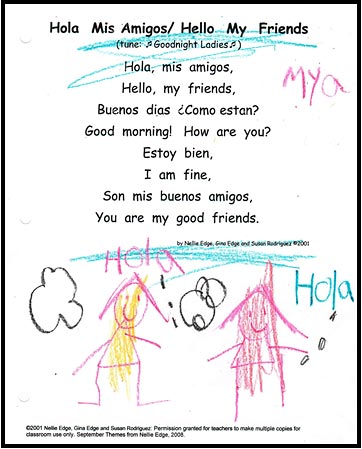 Hola Mis Amigos/ Hello My Friends
(tune: ♫Goodnight Ladies♫)
Hola, mis amigos,
Hello, my friends,
Mya
Buenos dias ¿Como estan?
Good morning! How are you?
Estoy bien,
I am fine,
Son mis buenos amigos,
You are my good friends.
by Nellie Edge, Gina Edge and Susan Rodriguez ©2001
Hola
Hola
©2001 Nellie Edge, Gina Edge and Susan Rodriguez: Permission granted for teachers to make multiple copies for
classroom use only. September Themes from Nellie Edge, 2008.